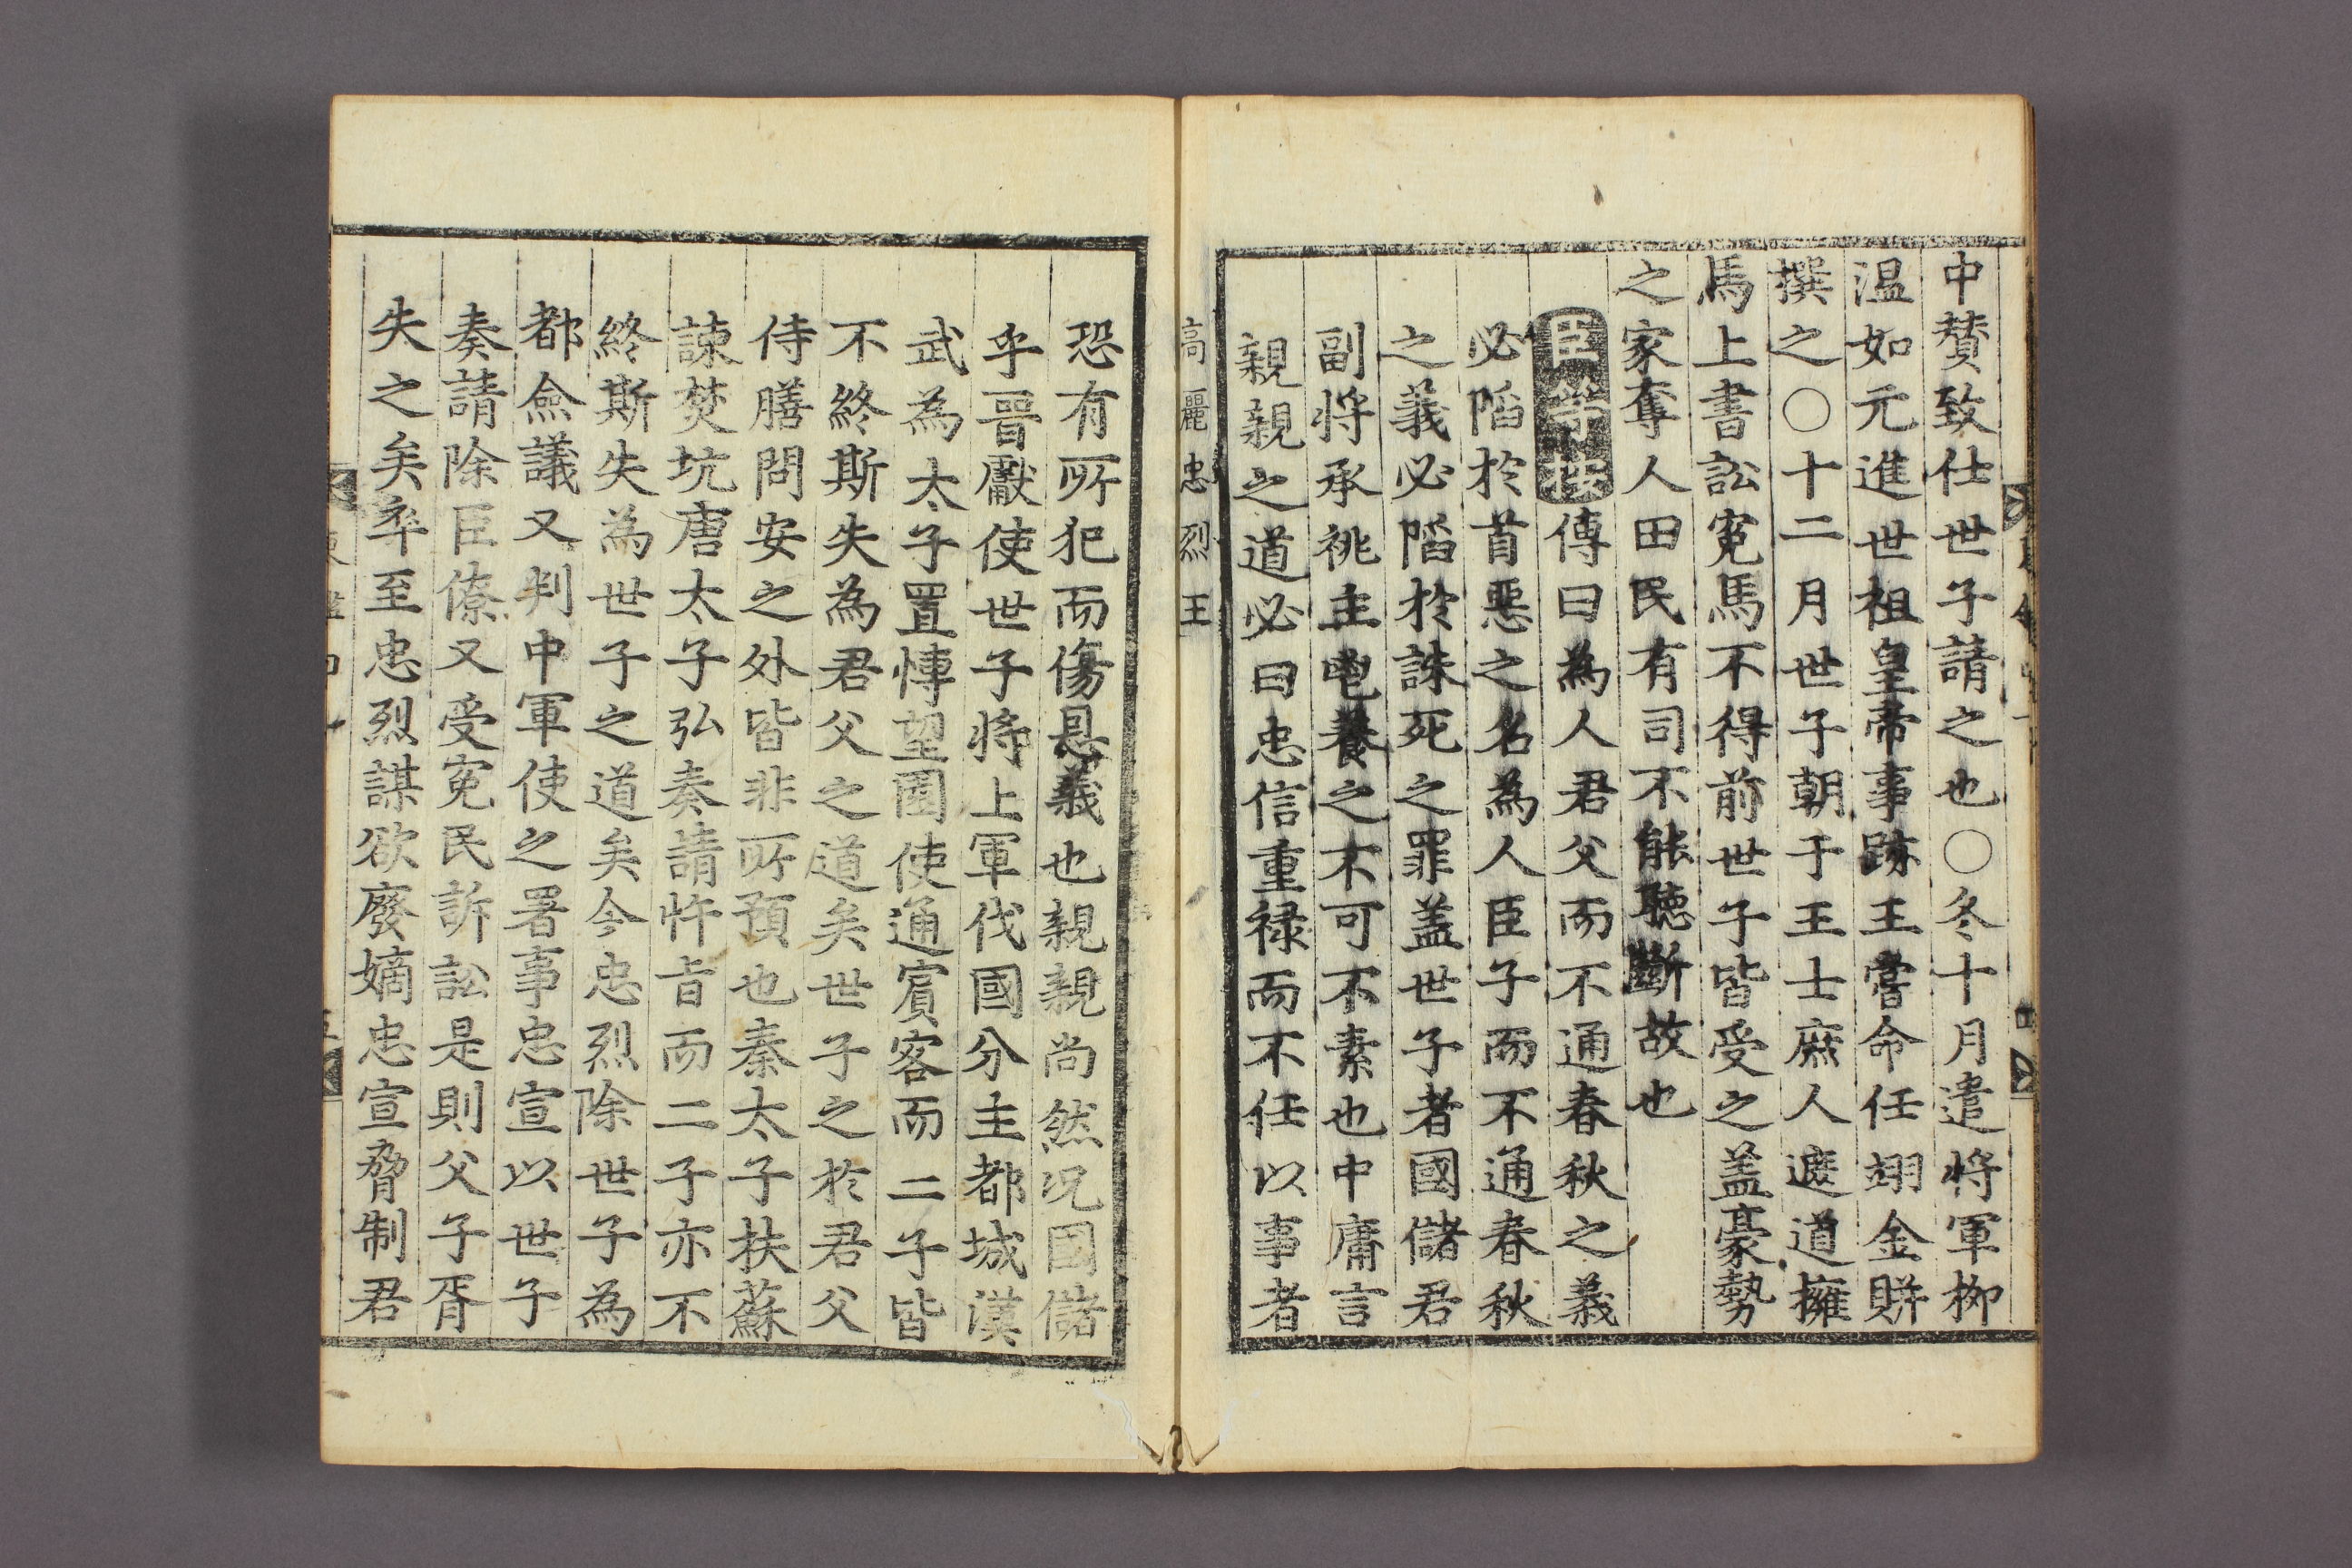 中賛致仕世子請之也○冬十月遣將軍柳
温如元進世祖皇帝事跡王嘗命任翊金賆
撰之○十二月世子朝于王士庶人遮道擁
馬上書訟寃馬不得前世子皆受之盖豪勢
之家奪人田民有司不能聽斷故也
臣等按傳曰為人君父而不通春秋之義
必陷於首惡之名為人臣子而不通春秋
之義必陷於誅死之罪盖世子者國儲君
副將承祧主鬯養之不可不素也中庸言
親親之道必曰忠信重祿而不任以事者
高麗忠烈王
恐有所犯而傷恩義也親親尚然况國儲
乎晋獻使世子將上軍伐國分主都城漢
武為太子置博望園使通賓客而二子皆
不終斯失為君父之道矣世子之於君父
侍膳問安之外皆非所預也秦太子扶蘇
諫焚坑唐太子弘奏請忤旨而二子亦不
終斯失為世子之道矣今忠烈除世子為
都僉議又判中軍使之署事忠宣以世子
奏請除臣僚又受寃民訴訟是則父子胥
失之矣卒至忠烈謀欲廢嫡忠宣脅制君